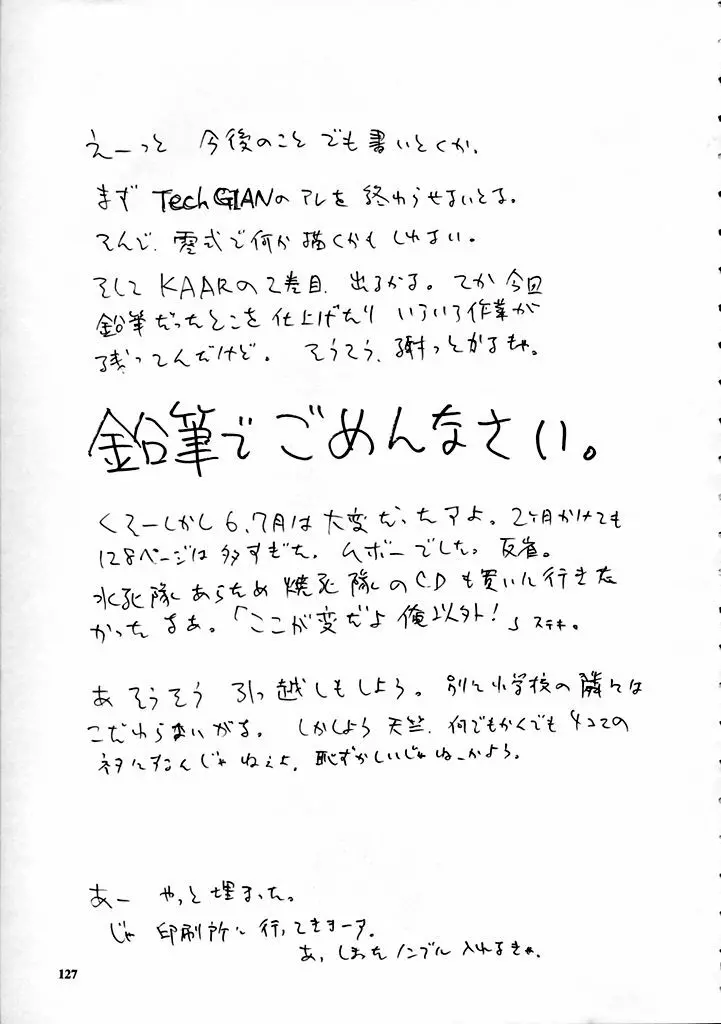 えーっと 今後のこと でも書いとくか.
まず TechGIANのアレを 終わらせないとな。
そんで、零式で何か描くかもしれない。
そして KAARの2巻目、出るかな。てか今回
鉛筆だったとこを 仕上げたり いろいろ作業が
残ってんだけど。 そうそう、謝っとかなきゃ。
鉛筆で ごめんなさい。
くそーしかし 6、7月は 大変だったすよ。2ヶ月かけても
128ページは多すぎた。ムボーでした。反省。
水死隊あらため 焼死隊のCDも買いに行きた
かったなあ。「ここが変だよ 俺以外!」ステキ。
あ そうそう 引っ越しもしよう。別に小学校の隣には
こだわらないがな。 しかししよう 天竺、何でもかくでも 4コマの
ネタにすんじゃねぇよ、恥ずかしいじゃねーかよう。
あー やっと埋まった。
じゃ 印刷所に 行ってきまーす.
あ、しまった ノンブル 入れなきゃ.
127